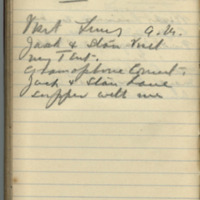 Visit Lines a.m.
Jack & Stan visit
my Tent.
Gramophone Concert.
Jack & Stan have
supper with me